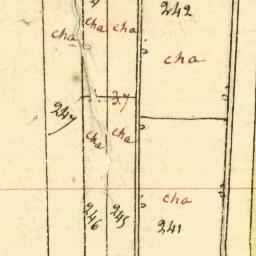 242
cha
cha
cha
cha
37
247
cha
cha
cha
246
245
241